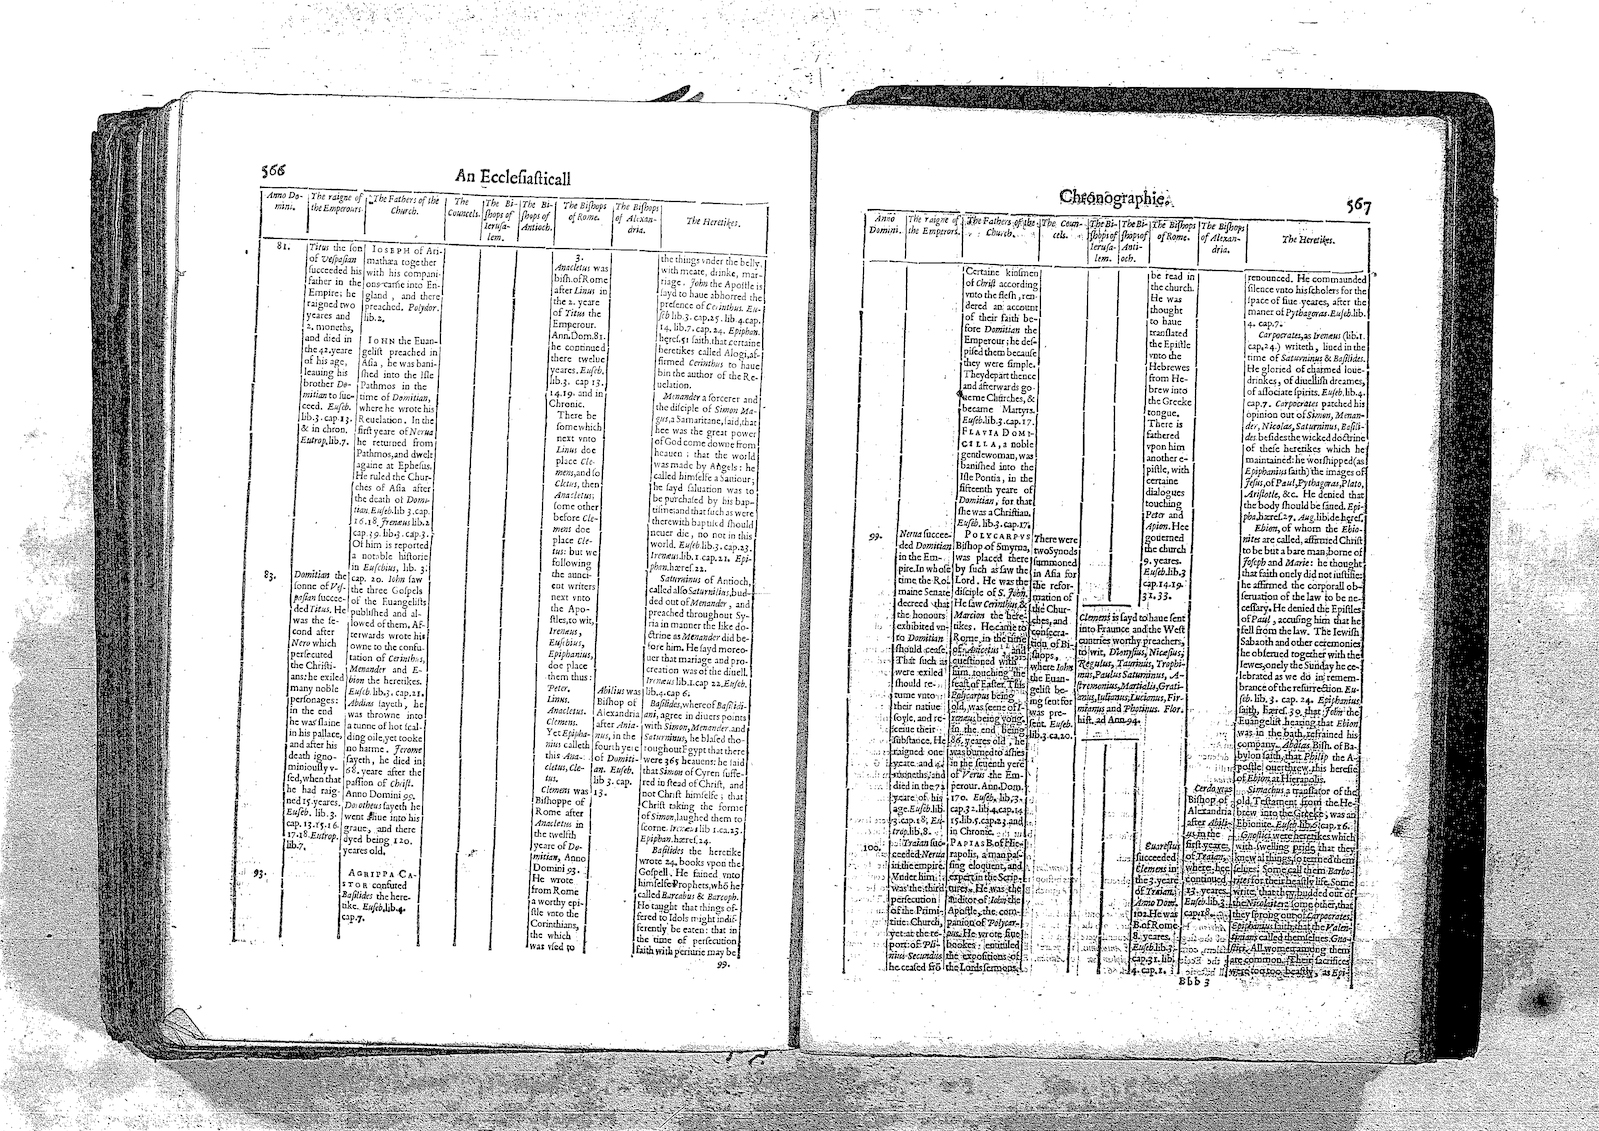 566
An Ecclesiasticall
Anno Do-
mini.
The raigne of
the Emperours.
The Fathers of the
Church.
The
Councels.
The Bi-
shops of
Ierusa-
lem.
The Bi-
shops of
Antioch.
The Bishops
of Rome.
The Bishops
of Alexan-
dria.
The Heretikes.
81.
Titus the son
of Vespasian
succeeded his
father in the
Empire; he
raigned two
yeares and
2. moneths,
and died in
the 42. yeare
of his age,
leauing his
brother Do-
mitian to suc-
ceed. Euseb.
lib.3. cap.13.
& in chron.
Eutrop, lib.7.
83.
Domitian the
sonne of Ves-
pasian succee-
ded Titus. He
was the se-
cond after
Nero which
persecuted
the Christi-
ans: he exiled
many noble
personages:
in the end
he was slaine
in his pallace,
and after his
death igno-
miniously v-
sed, when that
he had raig-
ned 15. yeares.
Euseb. lib.3.
cap.13.15.16
17.18. Eutrop.
lib.7.
93.
IOSEPH of Ari-
mathæa together
with his compani-
ons came into En-
gland, and there
preached. Polydor.
lib.2.
IOHN the Euan-
gelist preached in
Asia, he was bani-
shed into the Isle
Pathmos in the
time of Domitian,
where he wrote his
Reuelation. In the
first yeare of Nerua
he returned from
Pathmos, and dwelt
againe at Ephesus.
He ruled the Chur-
ches of Asia after
the death of Domi-
tian. Euseb. lib.3. cap.
16.18. Irenæus lib.2
cap.39. lib.3. cap.3.
Of him is reported
a notable historie
in Eusebius, lib. 3.
cap. 20. Iohn saw
the three Gospels
of the Euangelists
published and al-
lowed of them. Af-
terwards wrote his
owne to the confu-
tation of Cerinthus,
Menander and E-
bion the heretikes.
Euseb. lib.3. cap.21.
Abdias sayeth, he
was throwne into
a tunne of hot scal-
ding oile, yet tooke
no harme. Jerome
sayeth, he died in
68. yeare after the
passion of Christ.
Anno Domini 99.
Dorotheus sayeth he
went aliue into his
graue, and there
dyed being 120.
yeares old.
AGRIPPA CA-
STOR confuted
Basilides the here-
tike. Euseb. lib.4.
cap.7.
3.
Anacletus was
bish. of Rome
after Linus in
the 2. yeare
of Titus the
Emperour.
Ann.Dom.81.
he continued
there twelue
yeares. Euseb.
lib.3. cap 13.
14.19. and in
Chronic.
There be
some which
next vnto
Linus doe
place Cle-
mens, and so
Cletus, then
Anacletus;
some other
before Cle-
ment doe
place Cle-
tus: but we
following
the aunci-
ent writers
next vnto
the Apo-
stles, to wit,
Ireneus,
Eusebius,
Epiphanius,
doe place
them thus:
Peter,
Linus.
Anacletus.
Clemens.
Yet Epipha-
nius calleth
this Ana-
cletus, Cle-
tus.
Clement was
Bishoppe of
Rome after
Anacletus in
the twelfth
yeare of Do-
mitian, Anno
Domini 93.
He wrote
from Rome
a worthy epi-
stle vnto the
Corinthians,
the which
was vsed to
Abilius was
Bishop of
Alexandria
after Ania-
nus, in the
fourth yere
of Domiti-
an. Euseb.
lib 3. cap.
13.
the things vnder the belly,
with meate, drinke, mar-
riage. John the Apostle is
sayd to haue abhorred the
presence of Cerinthus. Eu-
seb lib.3. cap.25. lib.4. cap.
14. lib.7. cap.24. Epiphan.
heres.51 saith, that certaine
heretikes called Alogi, af-
firmed Cerinthus to haue
bin the author of the Re-
uelation.
Menander a sorcerer and
the disciple of Simon Ma-
gus, a Samaritane, said, that
hee was the great power
of God come downe from
heauen: that the world
was made by Angels: he
called himselfe a Sauiour;
he sayd saluation was to
be purchased by his bap-
tisme: and that such as were
therewith baptised should
neuer die, no not in this
world. Euseb. lib.3. cap.23.
Ireneus. lib.1. cap.21. Epi-
phan. hæres.22.
Saturninus of Antioch,
called also Saturnilius, bud-
ded out of Menander, and
preached throughout Sy-
ria in manner the like do-
ctrine as Menander did be-
fore him. He sayd moreo-
uer that mariage and pro-
creation was of the diuell.
Ireneus lib.1. cap 22. Euseb.
lib.4. cap 6.
Basilides, whereof Basilidi-
ani, agree in diuers points
with Simon, Menander and
Saturninus, he blased tho-
roughout Egypt that there
were 365 heauens: he said
that Simon of Cyren suffe-
red in stead of Christ, and
not Christ himselfe; that
Christ taking the forme
of Simon, laughed them to
scorne. Irenæus lib 1. ca.23.
Epiphan. hæres.24.
Basilides the heretike
wrote 24. books vpon the
Gospell. He fained vnto
himselfe Prophets, whõ he
called Barcabus & Barcoph.
He taught that things of-
fered to Idols might indif-
ferently be eaten: that in
the time of persecution
faith with periurie may be
99.
Chronographie.
567
Anno
Domini.
The raigne of
the Emperors.
The Fathers of the
Church.
The Coun-
cels.
The Bi-
shops of
Ierusa-
lem.
The Bi-
shops of
Anti-
och.
The Bishops
of Rome.
The Bishops
of Alexan-
dria.
The Heretikes.
99.
Nerua succee-
ded Domitian
in the Em-
pire. In whose
time the Ro-
maine Senate
decreed that
the honours
exhibited vn-
to Domitian
should cease.
That such as
were exiled
should re-
turne vnto
their natiue
soyle, and re-
ceiue their
substance. He
raigned one
yeare and 4.
moneths, and
died in the 72
yeare of his
age. Euseb. lib.
3. cap.18. Eu-
trop. lib.8.
100.
Traian suc-
ceeded Nerua
in the empire.
Vnder him
was the third
persecution
of the Primi-
tiue Church,
yet at the re-
port of Pli-
nius Secundus
he ceased frõ
Certaine kinsmen
of Christ according
vnto the flesh, ren-
dered an account
of their faith be-
fore Domitian the
Emperour; he des-
pised them because
they were simple.
They depart thence
and afterwards go-
uerne Churches, &
became Martyrs.
Euseb. lib.3. cap.17.
FLAVIA DOMI-
CILLA, a noble
gentlewoman, was
banished into the
Isle Pontia, in the
fifteenth yeare of
Domitian, for that
she was a Christian.
Euseb. lib.3. cap.17.
POLYCARPVS
Bishop of Smyrna,
was placed there
by such as saw the
Lord. He was the
disciple of S. John.
He saw Cerinthus &
Marcion the here-
tikes. He came to
Rome, in the time
of Anicetus, and
questioned with
him, touching the
feast of Easter. This
Polycarpus being
old, was seene of I-
reneus being yong.
In the end being
86. yeares old, he
was burned to ashes
in the seuenth yere
of Verus the Em-
perour. Ann.Dom.
170. Euseb. lib.3.
cap.32. lib.4. cap.14
15. lib.5. cap.23. and
in Chronic.
PAPIAS B. of Hie-
rapolis, a man pas-
sing eloquent, and
expert in the Scrip-
tures. He was the
auditor of Iohn the
Apostle, the com-
panion of Polycar-
pus. He wrote fiue
bookes entituled
the expositions of
the Lords sermons.
There were
two Synods
summoned
in Asia for
the refor-
mation of
the Chur-
ches, and
consecra-
tion of Bi-
shops,
where Iohn
the Euan-
gelist be-
ing sent for
was pre-
sent. Euseb.
lib.3. ca.20.
be read in
the church.
He was
thought
to haue
translated
the Epistle
vnto the
Hebrewes
from He-
brew into
the Greeke
tongue.
There is
fathered
vpon him
another e-
pistle, with
certaine
dialogues
touching
Peter and
Apion. Hee
gouerned
the church
9. yeares.
Euseb. lib.3
cap.14.19.
31.33.
Clemens is sayd to haue sent
into Fraunce and the West
countries worthy preachers,
to wit, Dionysius, Nicæsius,
Regulus, Taurinus, Trophi-
mus, Paulus Saturninus, A-
stremonius, Martialis, Grati-
anus, Iulianus, Lucianus, Fir-
mianus and Photinus. Flor.
hist. ad Ann.94.
Euarestus
succeeded
Clemens in
the 3. yeare
of Traian,
Anno Dom.
102. He was
B. of Rome
8. yeares.
Euseb. lib.3.
cap.31. lib.
4. cap.1.
Cerdo was
Bishop of
Alexandria
after Abili-
us in the
first yeare
of Traian,
where hee
continued
13. yeares.
Euseb. lib.3
cap.18.
renounced. He commaunded
silence vnto his scholers for the
space of fiue yeares, after the
maner of Pythagoras. Euseb. lib.
4. cap.7.
Carpocrates, as Ireneus (lib.1.
cap.24.) writeth, liued in the
time of Saturninus & Basilides.
He gloried of charmed loue-
drinkes, of diuellish dreames,
of associate spirits. Euseb. lib.4.
cap.7. Carpocrates patched his
opinion out of Simon, Menan-
der, Nicolas, Saturninus, Basili-
des: besides the wicked doctrine
of these heretikes which he
maintained: he worshipped (as
Epiphanius saith) the images of
Jesus, of Paul, Pythagoras, Plato,
Aristotle, &c. He denied that
the body should be saued. Epi-
pha. hæres.27. Aug. lib. de heres.
Ebion, of whom the Ebio-
nites are called, affirmed Christ
to be but a bare man, borne of
Joseph and Marie: he thought
that faith onely did not iustifie:
he affirmed the corporall ob-
seruation of the law to be ne-
cessary. He denied the Epistles
of Paul, accusing him that he
fell from the law. The Iewish
Sabaoth and other ceremonies
he obserued together with the
Iewes, onely the Sunday he ce-
lebrated as we do in remem-
brance of the resurrection. Eu-
seb. lib. 3. cap. 24. Epiphanius
saith, hæres.30, that John the
Euangelist hearing that Ebion
was in the bath, refrained his
company. Abdias Bish. of Ba-
bylon saith, that Philip the A-
postle ouerthrew this heresie
of Ebion at Hierapolis.
Simachus a translator of the
old Testament from the He-
brew into the Greeke, was an
Ebionite. Euseb. lib.6. cap.16.
Gnostici were heretikes which
with swelling pride, that they
knew al things, so termed them
selues. Some call them Barbo-
rites for their beastly life. Some
write, that they budded out of
the Nicolaites: some other, that
they sprong out of Carpocrates.
Epiphanius saith, that the Valen-
tinians called themselues Gno-
stici. All women among them
are common. Their sacrifices
were too too beastly, as Epi-
Bbb 3